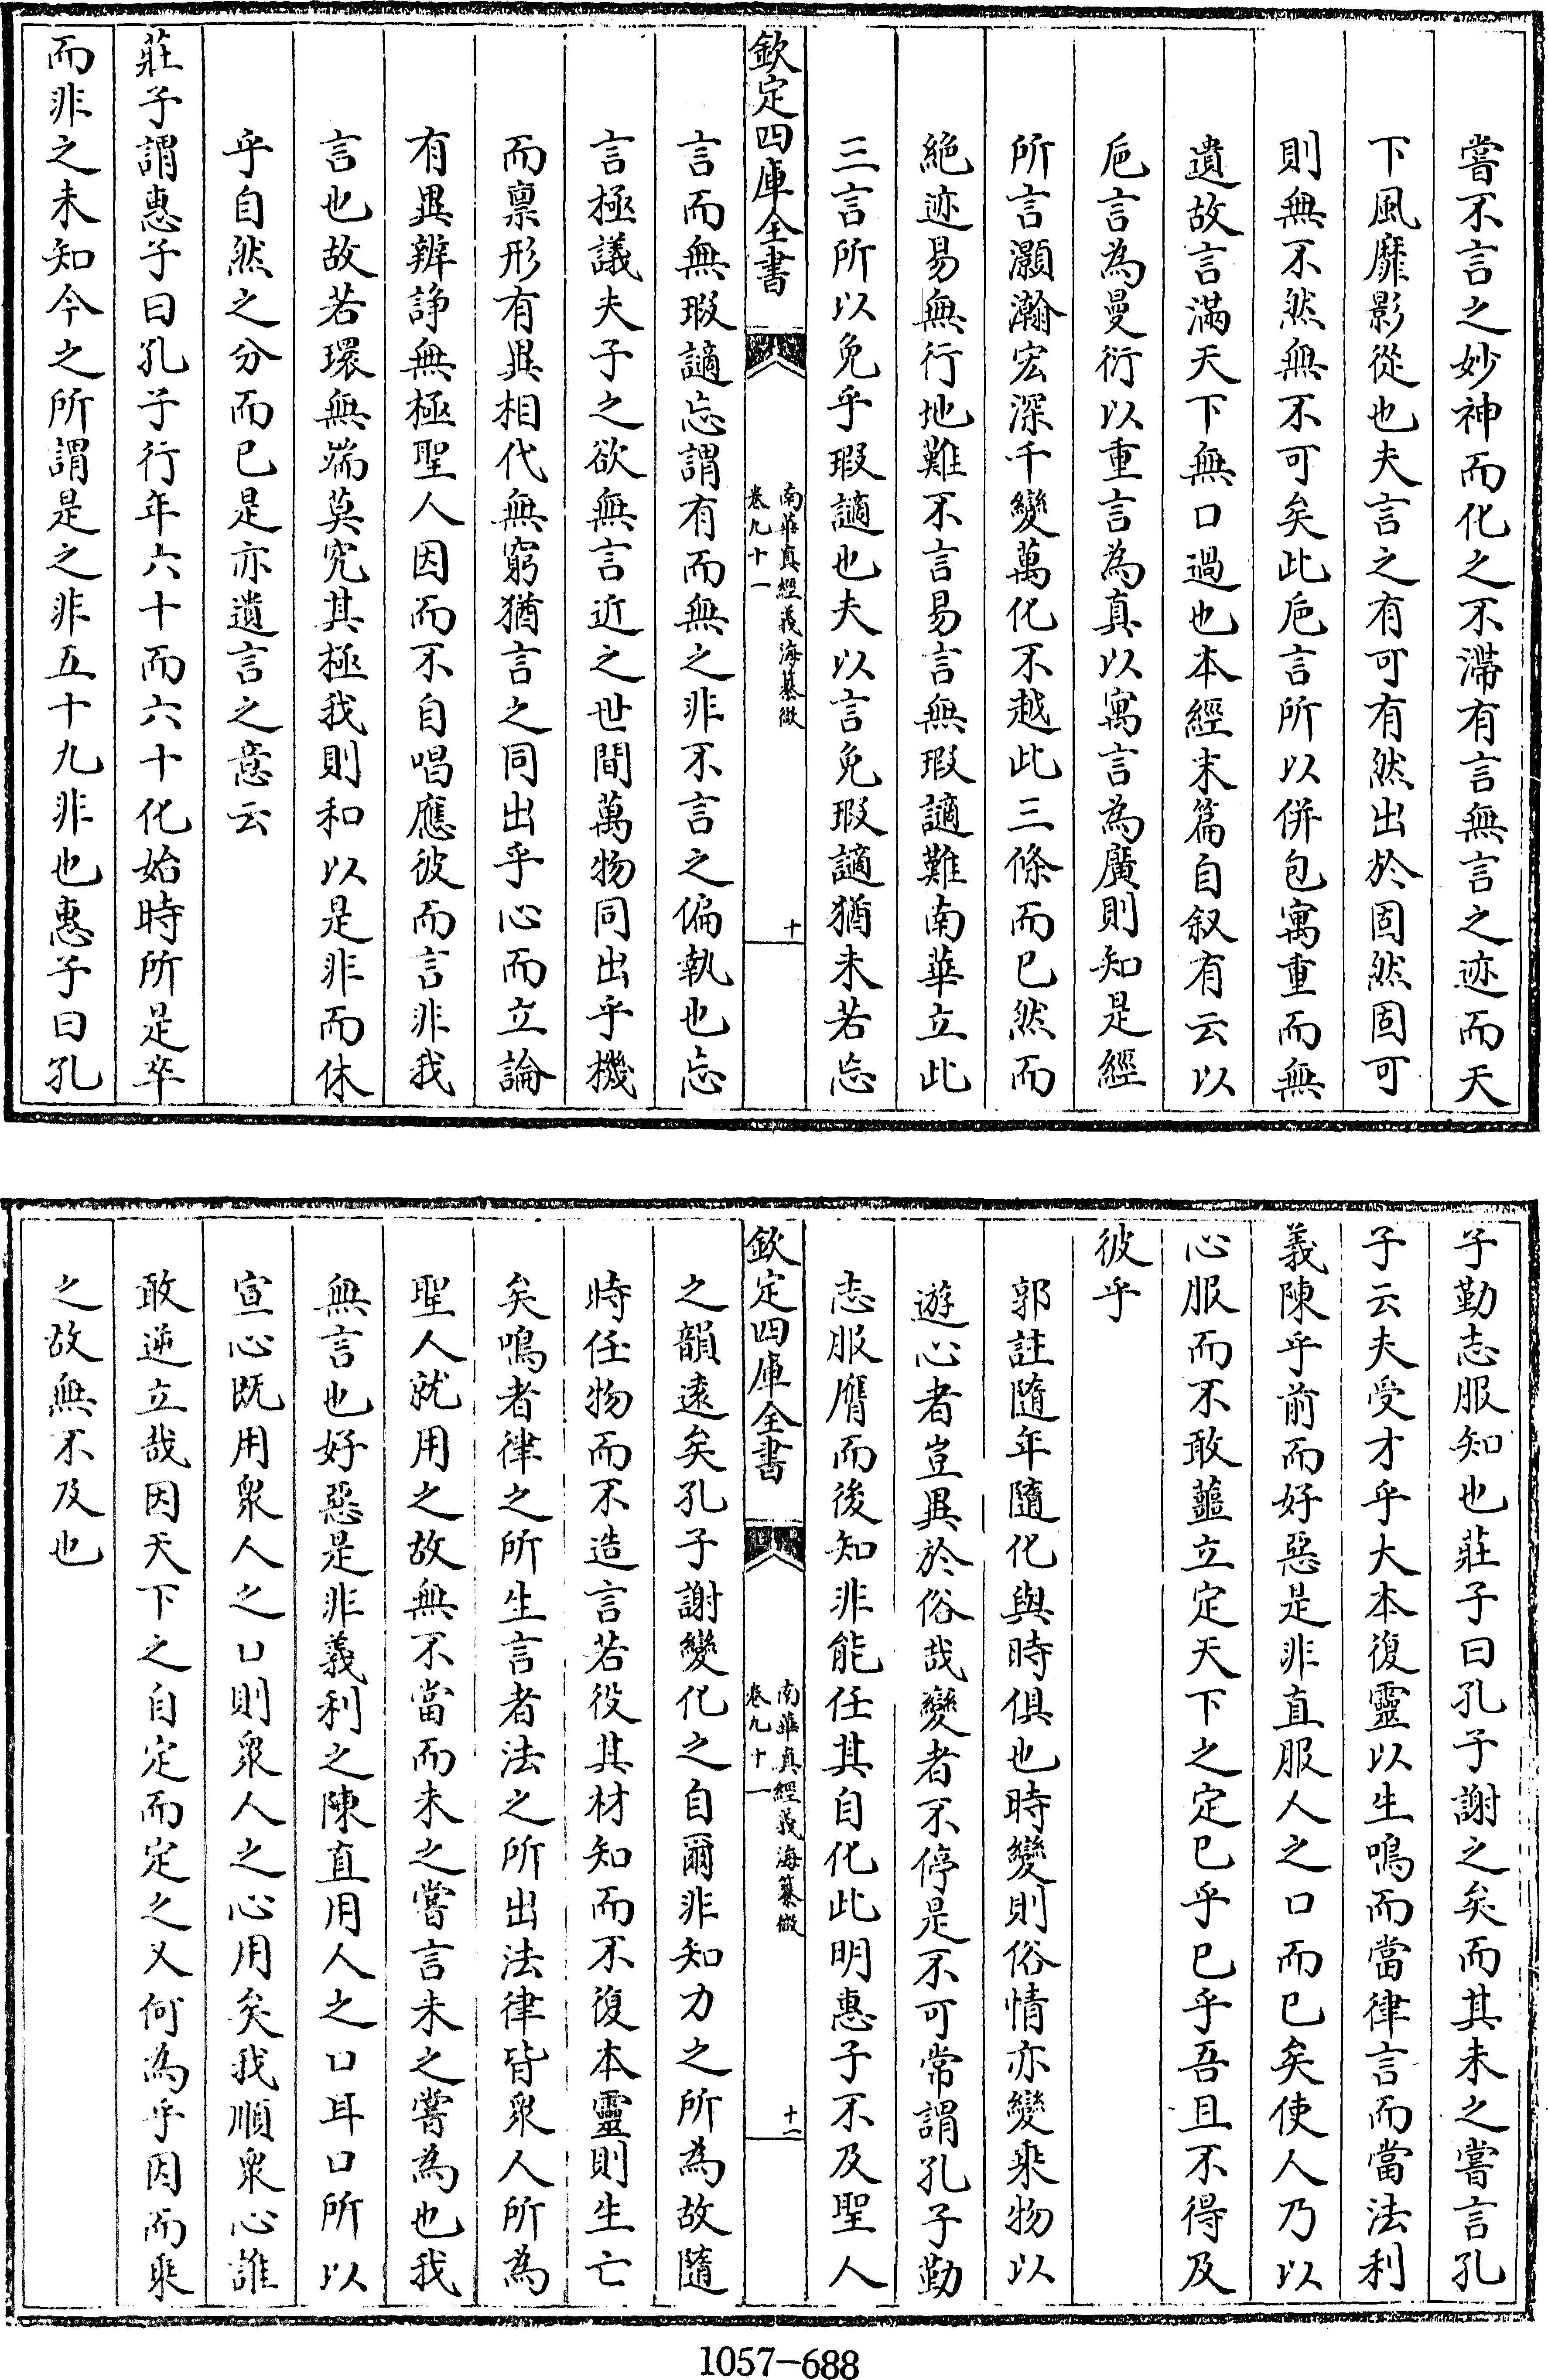 嘗不言之妙神而化之不滯有言無言之迹而天
下風靡影從也夫言之有可有然出於固然固可
則無不然無不可矣此巵言所以併包寓重而無
遺故言滿天下無口過也本經末篇自叙有云以
巵言為曼衍以重言為真以寓言為廣則知是經
所言灝瀚宏深千變萬化不越此三條而已然而
絶迹易無行地難不言易言無瑕謫難南華立此
三言所以免乎瑕謫也夫以言免瑕謫猶未若忘
欽定四庫全書
南華真經義海纂微
卷九十一
十
言而無瑕謫忘謂有而無之非不言之偏執也忘
言極議夫子之欲無言近之世間萬物同出乎機
而禀形有異相代無窮猶言之同出乎心而立論
有異辨諍無極聖人因而不自唱應彼而言非我
言也故若環無端莫究其極我則和以是非而休
乎自然之分而已是亦遺言之意云
莊子謂惠子曰孔子行年六十而六十化始時所是卒
而非之未知今之所謂是之非五十九非也惠子曰孔
子勤志服知也莊子曰孔子謝之矣而其未之嘗言孔
子云夫受才乎大本復靈以生鳴而當律言而當法利
義陳乎前而好惡是非直服人之口而已矣使人乃以
心服而不敢蘁立定天下之定已乎已乎吾且不得及
彼乎
郭註隨年隨化與時俱也時變則俗情亦變乘物以
遊心者豈異於俗哉變者不停是不可常謂孔子勤
志服膺而後知非能任其自化此明惠子不及聖人
欽定四庫全書
南華真經義海纂微
卷九十一
十一
之韻遠矣孔子謝變化之自爾非知力之所為故隨
時任物而不造言若役其材知而不復本靈則生亡
矣鳴者律之所生言者法之所出法律皆衆人所為
聖人就用之故無不當而未之嘗言未之嘗為也我
無言也好惡是非義利之陳直用人之口耳口所以
宣心既用衆人之口則衆人之心用矣我順衆心誰
敢逆立哉因天下之自定而定之又何為乎因而乘
之故無不及也
1057-688